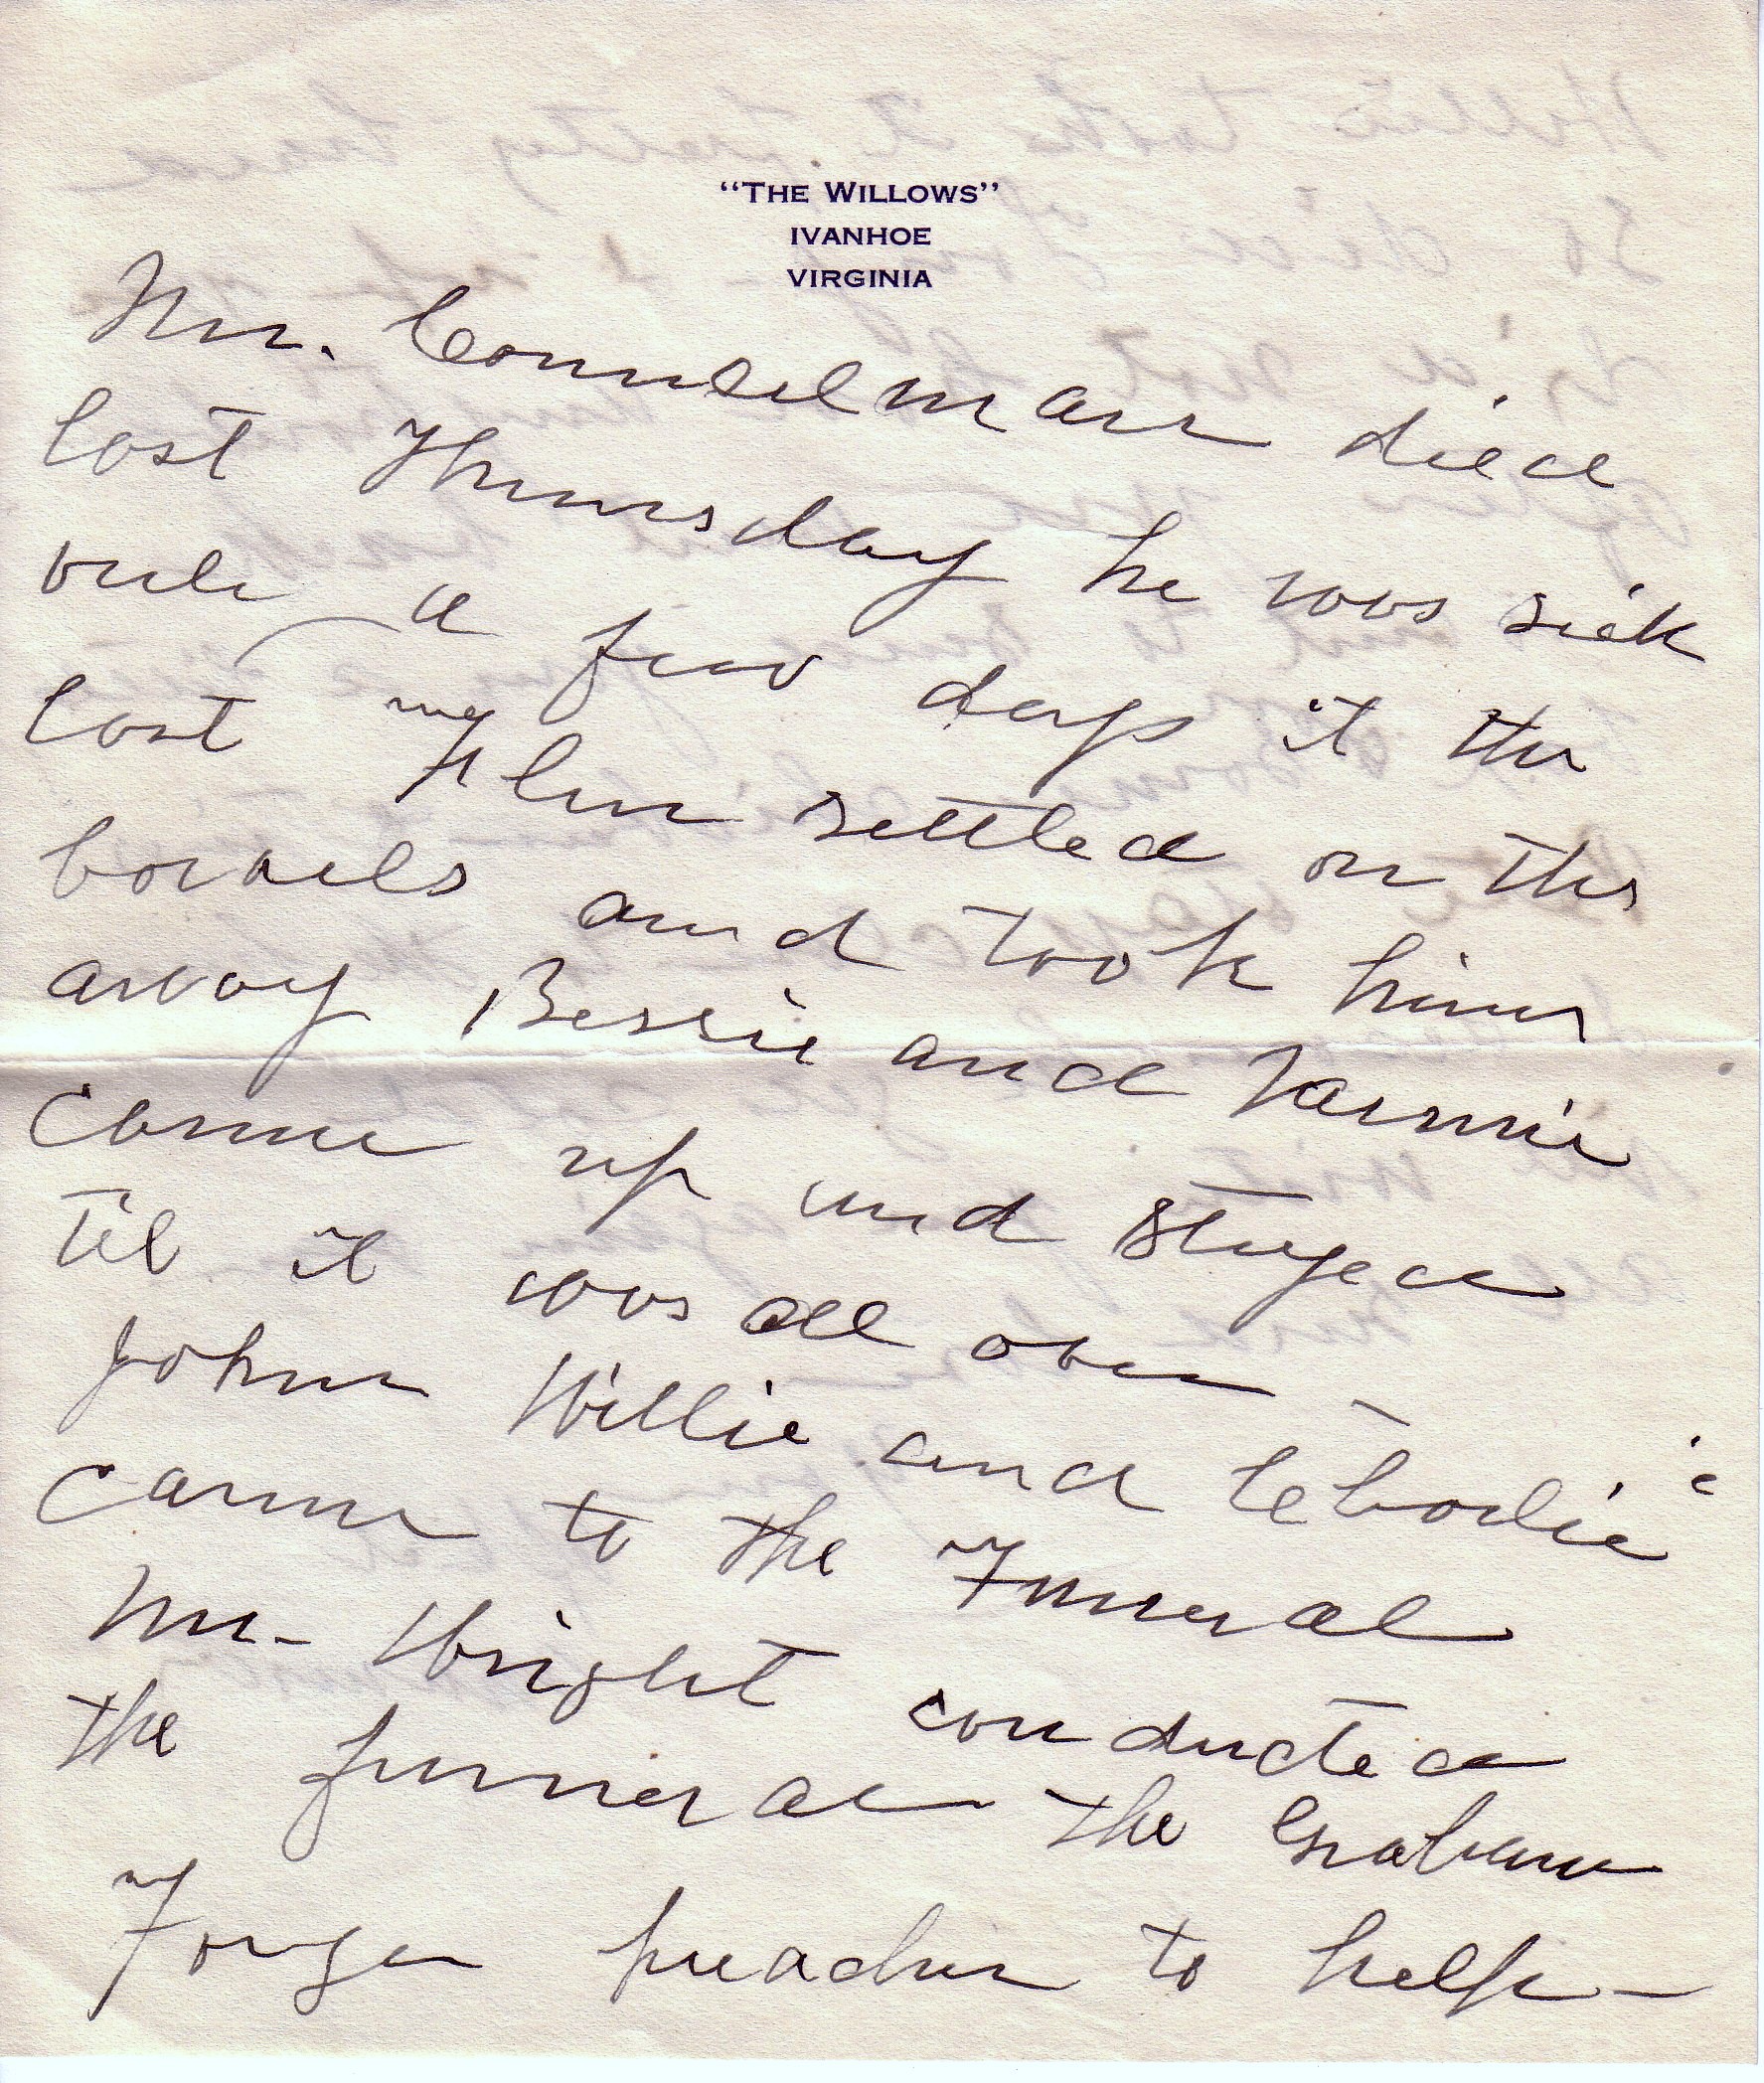 “THE WILLOWS”
IVANHOE
VIRGINIA
Mr. Counselman died
last Thursday he was sick
only a few days it the
last Flu settled on the
bowels and took him
away Bessie and
came up and stayed
til it was all over –
John Willie and
came to the Funeral
Mr. Wright conducted
the funeral the Graham
Forge preacher to help –